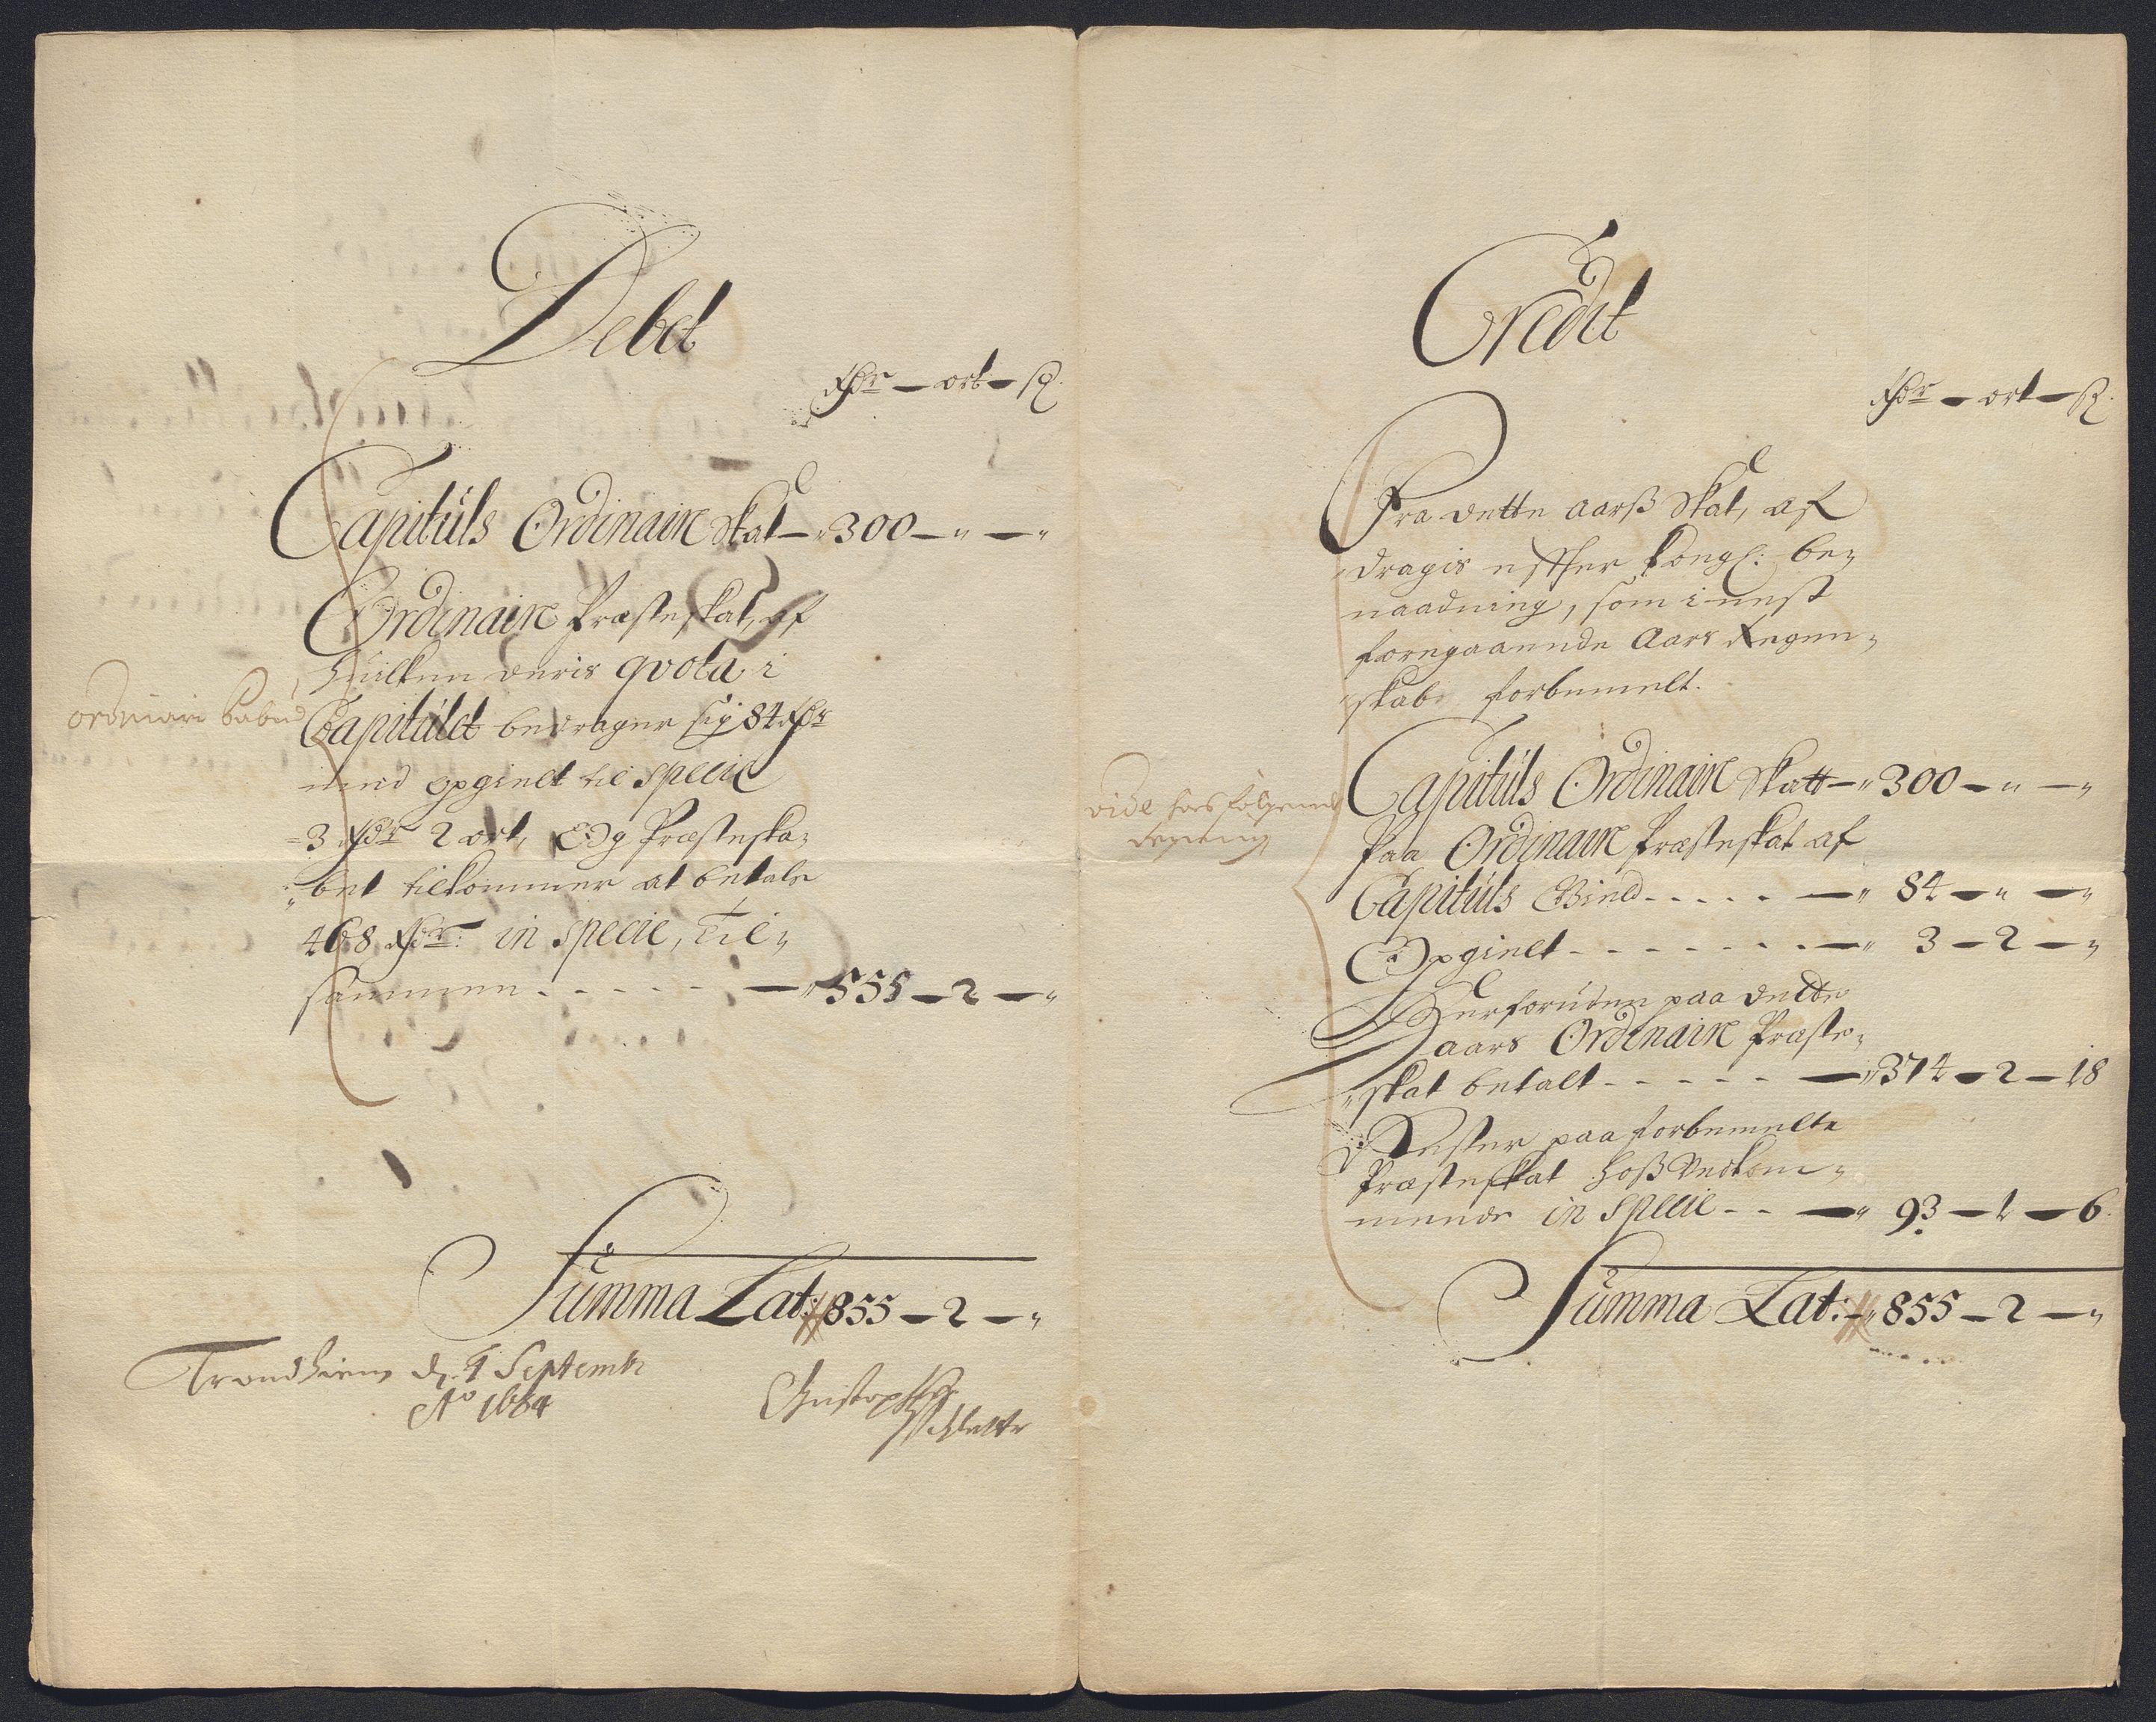 Debet
Rdr — ort — ß.
Capituls Ordinaire Skat — 300 — " — "
Ordinaire Præsteskat, af
huilken deris qvota i
ordinari
Capitulet bedrager sig 84 Rdr
med opgield til specie
3 Rdr 2 ort, Og Præsteska=
bet tilkommer at betale
468 Rdr: in specie, Til=
sammen . . . . . — 555 — 2 — "
Summa Lat: 855 — 2 — "
Trondhiem d. 4 Septembr
Ao 1684
Christopher
Credit
Rdr — ort — ß.
Fra dette aarß Skat, af
dragis effter Kongl: be=
naadning, som i nest
foregaaende Aars Regen=
skab forbemelt.
Capituls Ordinaire Skatt — 300 — " — "
vide hos følgende
Paa Ordinaire Præsteskat af
Capituls Bind . . . . . — 84 — " — "
Opgield . . . . . . . — 3 — 2 — "
Herforuden paa dette
aars Ordinaire Præste=
skat betalt . . . . . — 374 — 2 — 18
Rester paa forbemelte
Præsteskat hoß Vedkom=
mende in specie . . — 93 — 1 — 6.
Summa Lat: — 855 — 2 — "